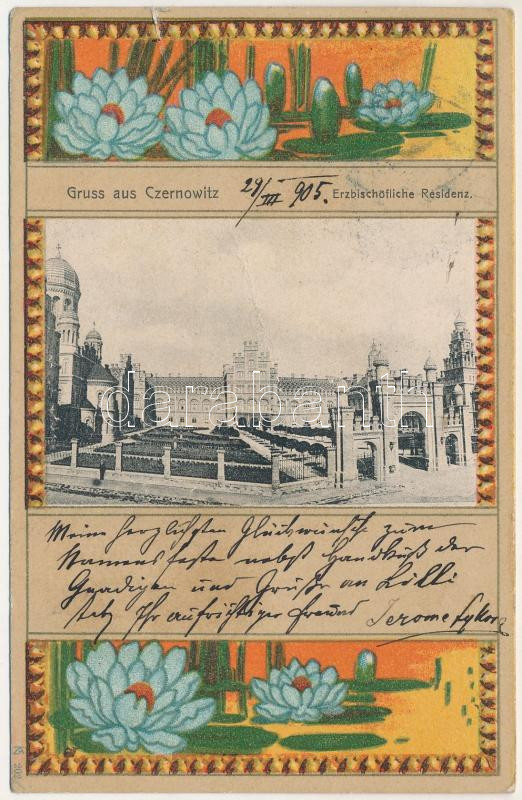 Gruss aus Czernowitz 29/III 905. Erzbischöfliche Residenz.
darabanth
Meine herzlichsten Glückwünsche zum
Namensfeste nebst Handkuß der
Gnädigen und Grüße an Lilli
Ihr aufrichtiger Freund Jerome